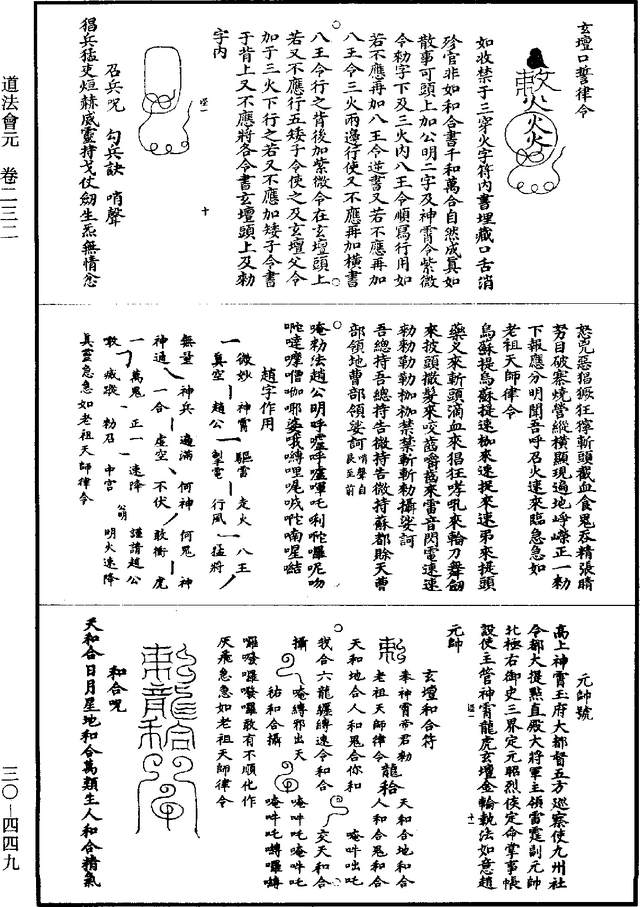 玄壇口誓律令
如收禁于三穿火字符內書埋藏口舌消
殄官非如和合書千和萬合自然成真如
散事可頭上加公明二字及神霄令紫微
令勑字下及三火內八王令順寫行用如
若不應再加八王令逆書又若不應再加
八王令三火兩邊行使又不應再加橫書
八王令行之背後加紫微令在玄壇頭上
若又不應行五矮子令使之及玄壇父令
加于三火下行之若又不應加矮子令書
于背上又不應將各令書玄壇頭上及勑
字內
召兵呪 勾兵訣 哨聲
猖兵猛吏烜赫威靈持戈仗劒生炁無情忿
怒兇惡猖獗狂獰斬頭截血食鬼吞精張睛
努目破寨燒營縱橫顯現遍地崢嶸正一勑
下報應分明聞吾呼召火速來臨急急如
老祖天師律令
烏蘇提烏蘇提速枷來速捉來速弟來提頭
藥义來斬頭滴血來猖狂哮吼來輪刀舞劒
來披頭撒髮來咬齒嚼齒來雷音閃電速速
勑勑勒勒枷枷禁禁斬斬勑攝娑訶
吾總持吾總持告微持告微持蘇都賖天曹
部領地曹部領娑訶 哨聲自艮至前
唵勑法趙公明呼嚧呼嚧㖔吒唎吔囉呢吻
吔噠囉僧咖耶婆哦嚩哩㖏𠺁吔喃喔㗌
趙字作用
微妙 神霄 驅雷 走火 八王
真空 趙公 掣電 行風 猛將
無量 神兵 遍滿 何神 何鬼 神
神通 一合 虛空 不伏 敢衝 虎
一 萬鬼 正一 速降 謹請趙公
敢 滅蹤 勑召 中宮 公明 明火速降
真靈急急如老祖天師律令
元帥號
高上神霄玉府大都督五方巡察使九州社
令都大提點直殿大將軍主領雷霆副元帥
北極右御史三界定元昭烈侯定命掌事帳
設使主管神霄龍虎玄壇金輪執法如意趙
元帥
玄壇和合符
奉神霄帝君勑 天和合地和合
老祖天師律令 龍秴 人和合鬼和合
天和地合人和鬼合你和 唵吽咄吒
我合六龍驅縛速令和合 交天和合
攝 唵縛邪出天 唵吽吒唵吽吒
秥和合攝 唵吽吒囀囉囀
囉㘑囉㘑囉敢有不順化作
灰飛急急如老祖天師律令
和合呪
天和合日月星地和合萬類生人和合精氣
道法會元 卷二三二
三〇—四四九